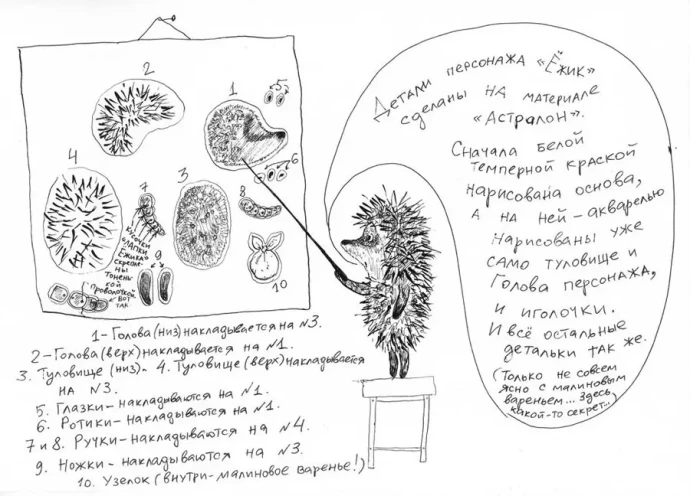 2
1
5
6
4
7
3
8
9
10
кусочки
лапки
Ёжика
скрепле-
ны
тонень-
кой
проволочкой
вот
так
Детали персонажа «Ёжик»
сделаны на материале
«Астралон».
Сначала белой
темперной краской
нарисована основа,
а на ней – акварелью
нарисованы уже
само туловище и
голова персонажа,
и иголочки.
И всё остальные
детальки так же.
(Только не совсем
ясно с малиновым
вареньем... Здесь
какой-то секрет...)
1 – Голова (низ) накладывается на №3.
2 – Голова (верх) накладывается на №1.
3. Туловище (низ). – 4. Туловище (верх) накладывается
на №3.
5. Глазки – накладываются на №1.
6. Ротики – накладываются на №1.
7 и 8. Ручки – накладываются на №4.
9. Ножки – накладываются на №3.
10. Узелок (внутри – малиновое варенье!)